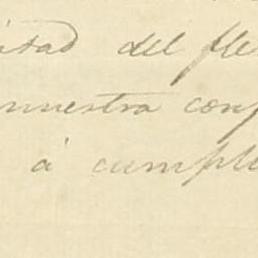 itad del fle
nuestra conf
á cumpl